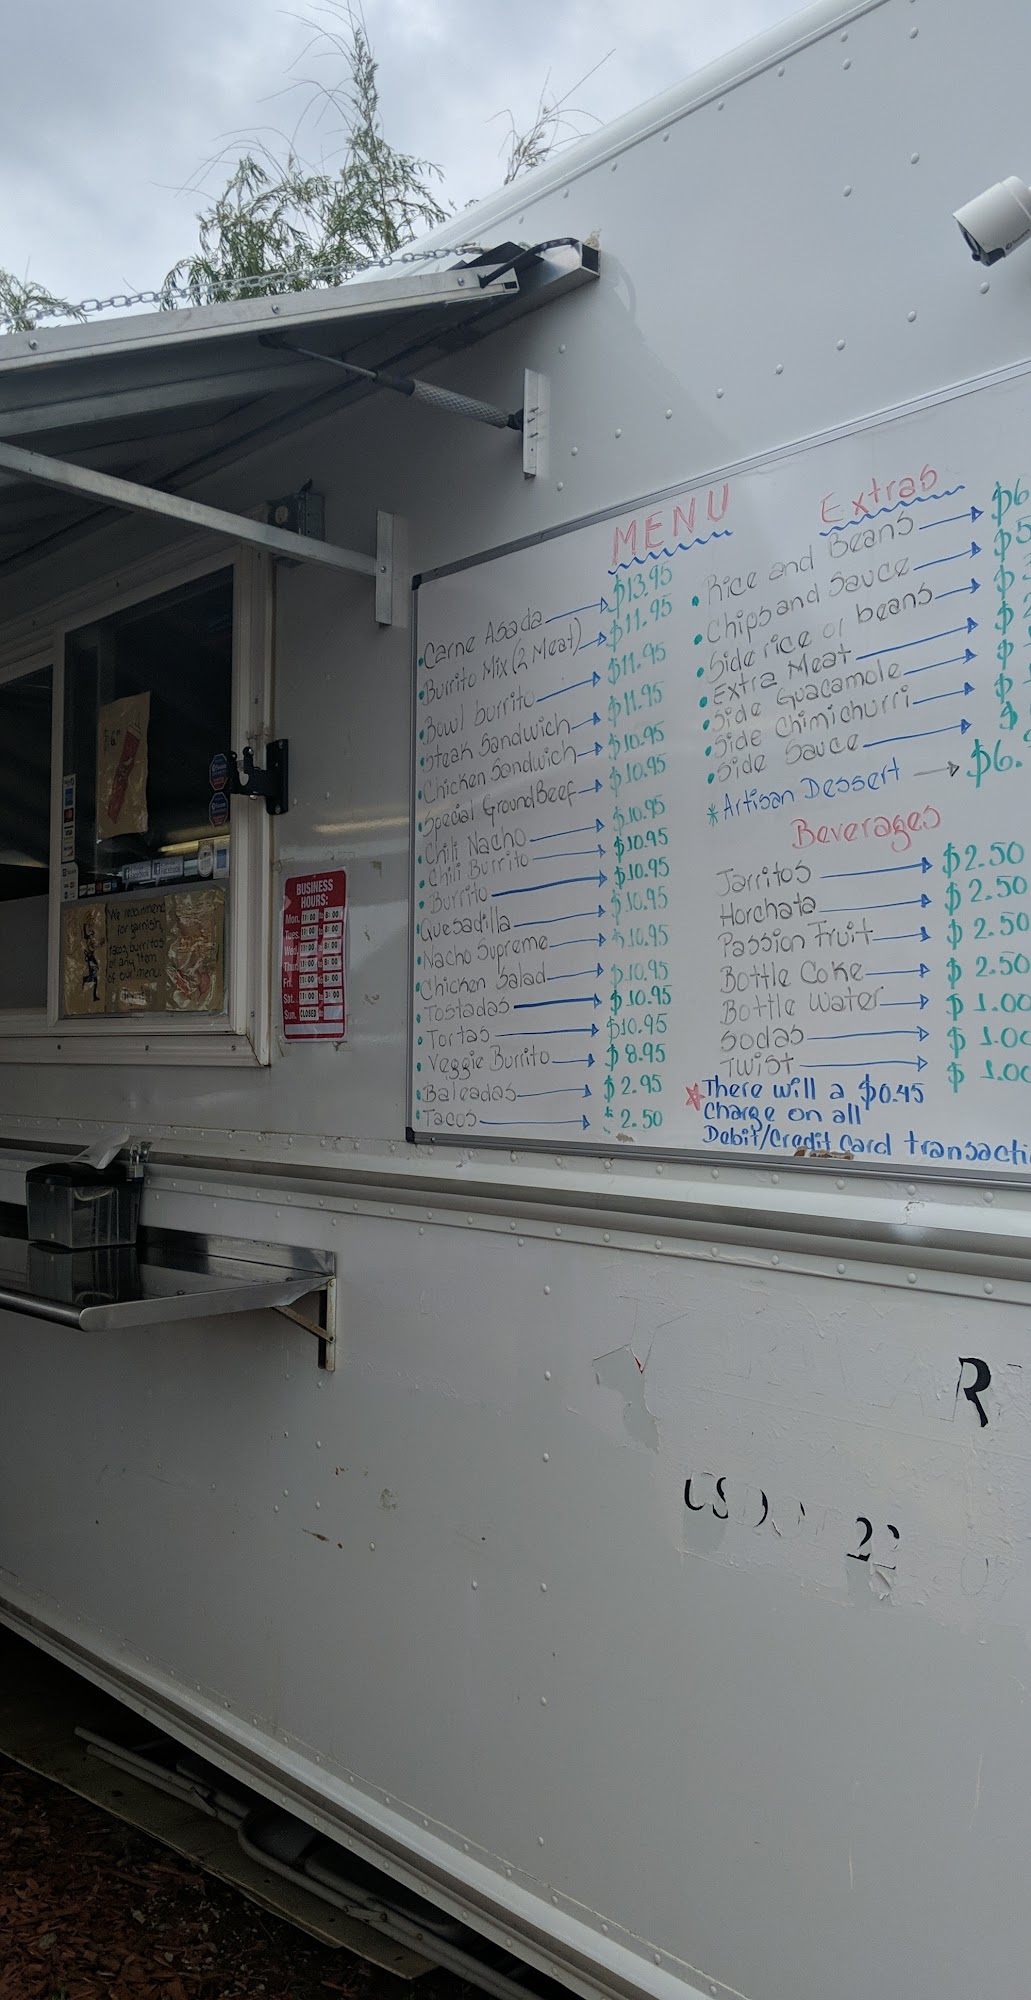 MENU
• Carne Asada $13.95
• Burrito Mix (2 Meat) $11.95
• Bowl burrito $11.95
• Steak Sandwich $11.95
• Chicken Sandwich $10.95
• Special Ground Beef $10.95
• Chili Nacho $10.95
• Chili Burrito $10.95
• Burrito $10.95
• Quesadilla $10.95
• Nacho Supreme $10.95
• Chicken Salad $10.95
• Tostadas $10.95
• Tortas $10.95
• Veggie Burrito $8.95
• Baleadas $2.95
• Tacos $2.50
Extras
• Rice and Beans $6
• Chips and Sauce $5
• Side rice or beans
• Extra Meat
• Side Guacamole
• Side Chimichurri
• Side Sauce
* Artisan Dessert $6.
Beverages
Jarritos $2.50
Horchata $2.50
Passion Fruit $2.50
Bottle Coke $2.50
Bottle Water $1.00
Sodas $1.00
Twist $1.00
There will a $0.45
Charge on all
Debit/Credit Card transacti
BUSINESS
HOURS:
Mon. 11:00 8:00
Tues.
Wed.
Thur.
Fri.
Sat.
Sun. CLOSED
We recommend
for garnish,
tacos, burritos
or any item
of our menu.
R